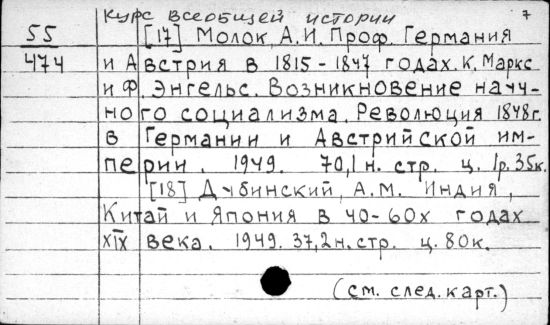 Курс всеобщей истории
7
55
474
[17] Молок, А.И. Проф. Германия
и Австрия в 1815-1847 годах. К. Маркс
и Ф. Энгельс. Возникновение науч-
ного социализма. Революция 1848г.
в Германии и Австрийской им-
перии. 1949. 70,1 н. стр. ц. 1р. 35к.
[18] Дубинский, А.М. Индия,
Китай и Япония в 40-60х годах
XIX века. 1949. 37,2 н. стр. ц. 80к.
(см. след. карт.)